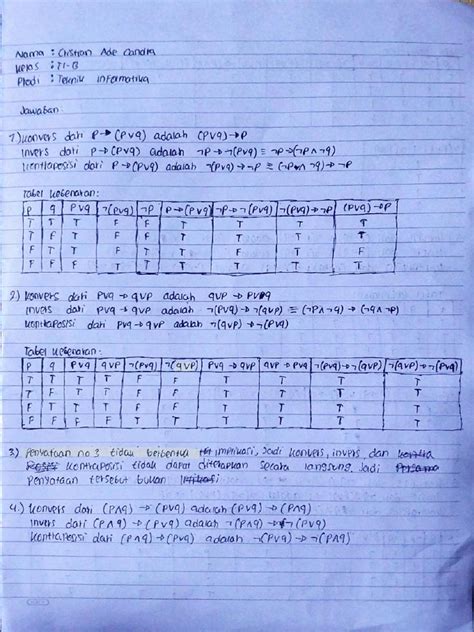 Nama : Christian Ade Candra
Kelas : TI-B
Plodi : Teknik Informatika
Jawaban:
1) Konvers dari P → (P∨q) adalah (P∨q) → P
Invers dari P → (P∨q) adalah ¬P → ¬(P∨q) ≡ ¬P → (¬P ∧ ¬q)
Kontraposisi dari P → (P∨q) adalah ¬(P∨q) → ¬P ≡ (¬P ∧ ¬q) → ¬P
Tabel Kebenaran:
P q P∨q ¬(P∨q) ¬P P → (P∨q) ¬P → ¬(P∨q) ¬(P∨q) → ¬P (P∨q) → P
T T T F F T T T T
T F T F F T T T T
F T T F T T F T F
F F F T T T T T T
2) Konvers dari P∨q → q∨P adalah q∨P → P∨q
Invers dari P∨q → q∨P adalah ¬(P∨q) → ¬(q∨P) ≡ (¬P∧¬q) → (¬q∧¬P)
Kontraposisi dari P∨q → q∨P adalah ¬(q∨P) → ¬(P∨q)
Tabel Kebenaran:
P q P∨q q∨P ¬(P∨q) ¬(q∨P) P∨q → q∨P q∨P → P∨q ¬(P∨q) → ¬(q∨P) ¬(q∨P) → ¬(P∨q)
T T T T F F T T T T
T F T T F F T T T T
F T T T F F T T T T
F F F F T T T T T T
3) Penyataan no 3 tidak berbentuk implikasi, Jadi konvers, invers dan
kontraposisi tidak dapat diterapkan secara langsung. Jadi
Penyataan tersebut bukan
4.) Konvers dari (P∧q) → (P∨q) adalah (P∨q) → (P∧q)
Invers dari (P∧q) → (P∨q) adalah ¬(P∧q) → ¬(P∨q)
Kontraposisi dari (P∧q) → (P∨q) adalah ¬(P∨q) → ¬(P∧q)